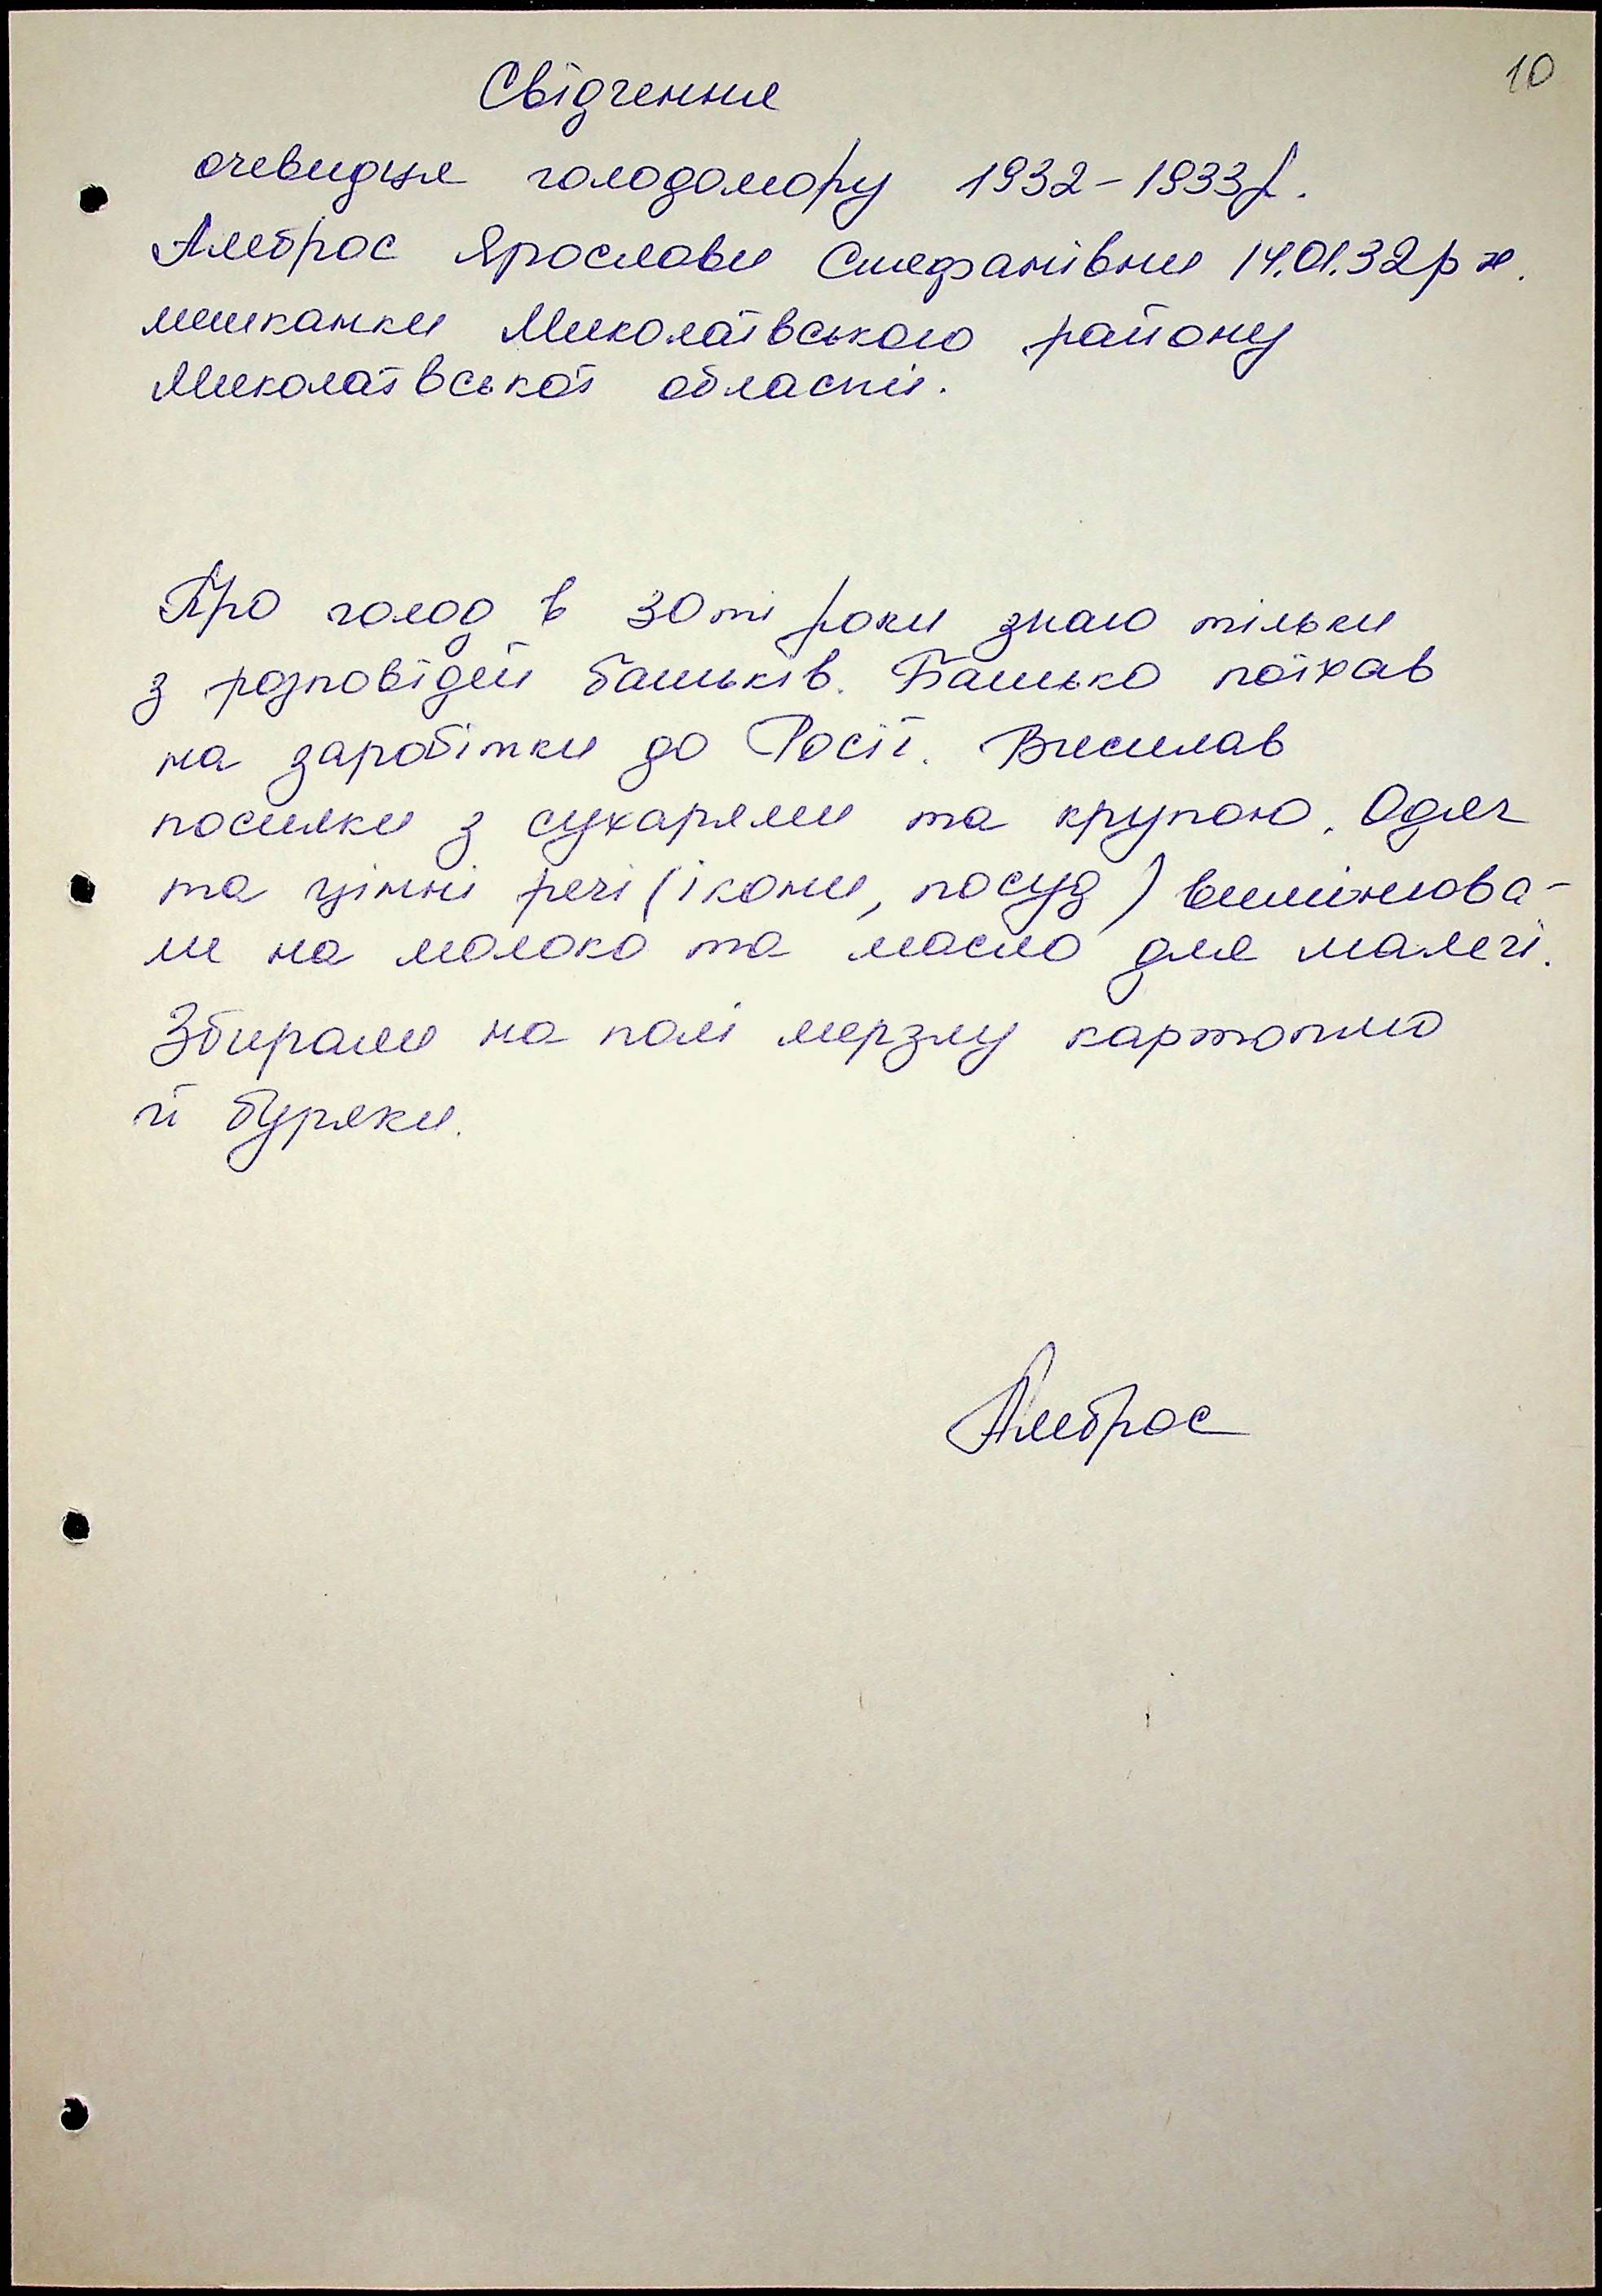 10
Свідчення
очевидця голодомору 1932-1933р.
Амброс Ярослави Стефанівни 14.01.32р н.
мешканки Миколаївського району
Миколаївської області.
Про голод в 30ті роки знаю тільки
з розповідей батьків. Батько поїхав
на заробітки до Росії. Висилав
посилки з сухарями та крупою. Одяг
та цінні речі (ікони, посуд) вимінюва-
ли на молоко та масло для малечі.
Збирали на полі мерзлу картоплю
й буряки.
Амброс